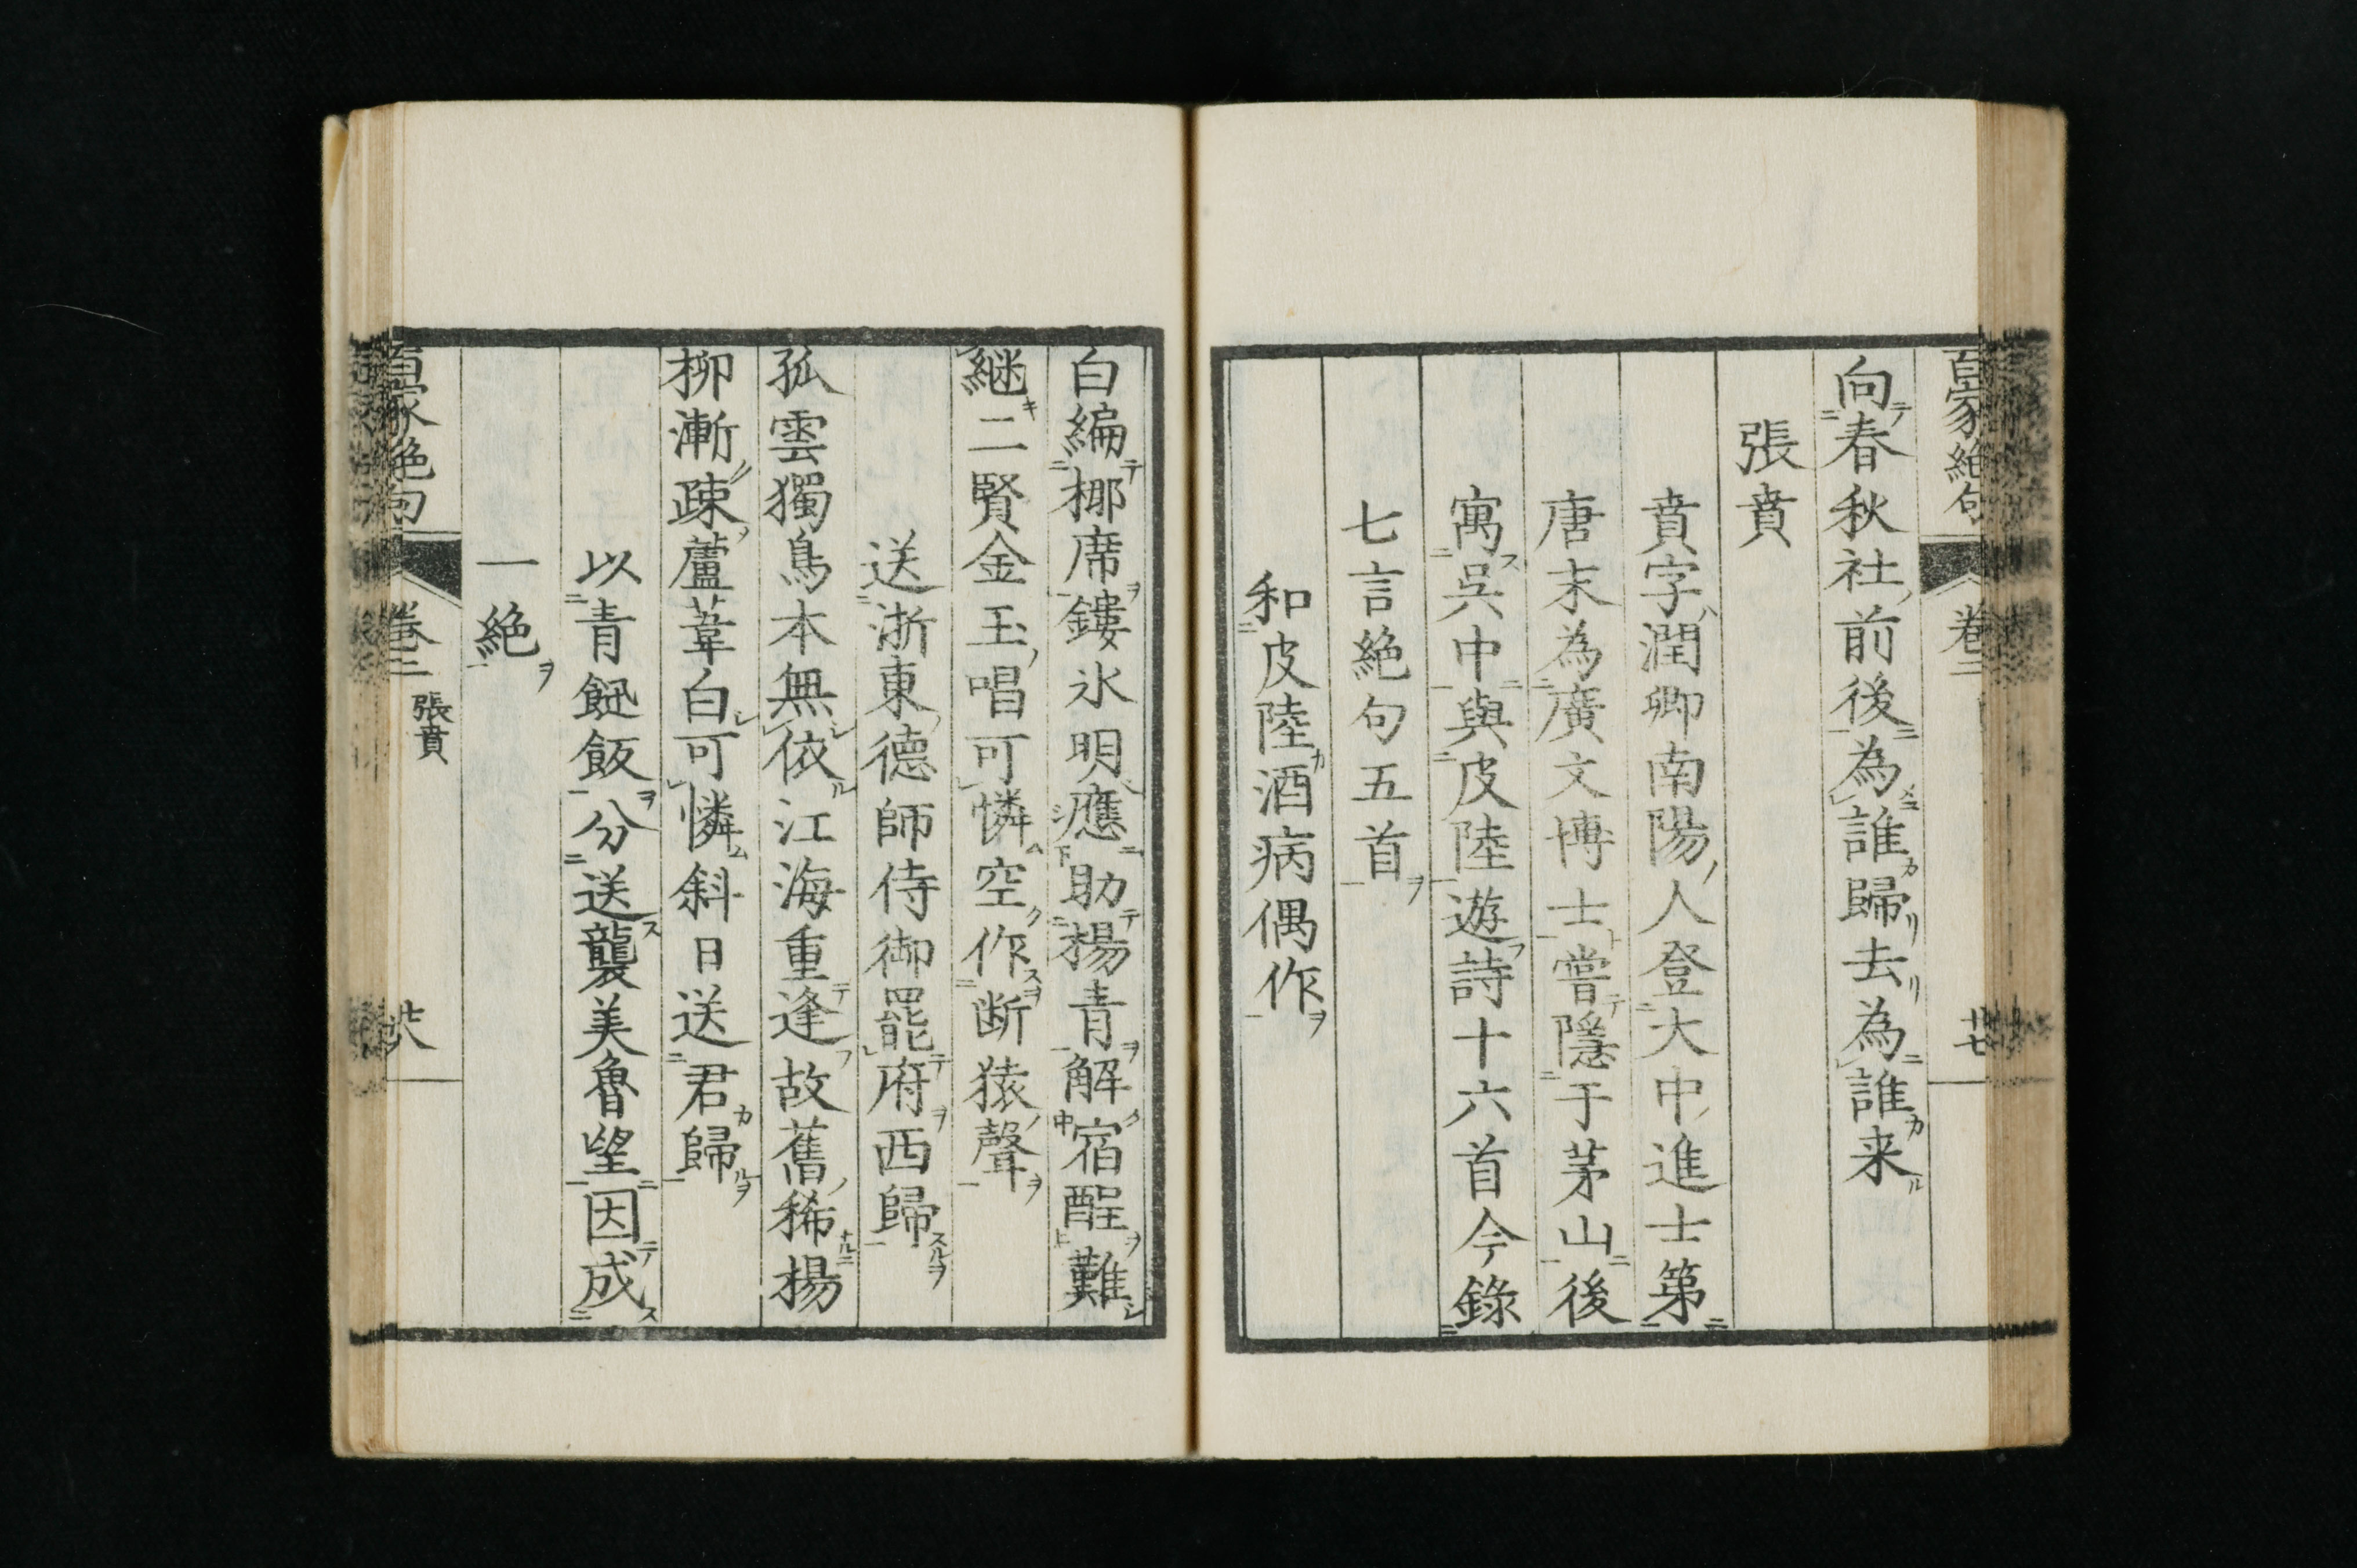 百家絶句 卷二 廿七
向春秋社前後為誰歸去為誰来
張賁
賁字潤卿南陽人登大中進士第
唐末為廣文博士嘗隱于茅山後
寓吳中與皮陸遊詩十六首今錄
七言絶句五首
和皮陸酒病偶作
白編椰席鏤氷明應助楊青解宿酲難
継二賢金玉唱可憐空作断猿聲
送浙東德師侍御罷府西歸
孤雲獨鳥本無依江海重逢故舊稀楊
柳漸疎蘆葦白可憐斜日送君歸
以青䭀飯分送襲美魯望因成
一絶
百家絶句 卷二 張賁 廿八